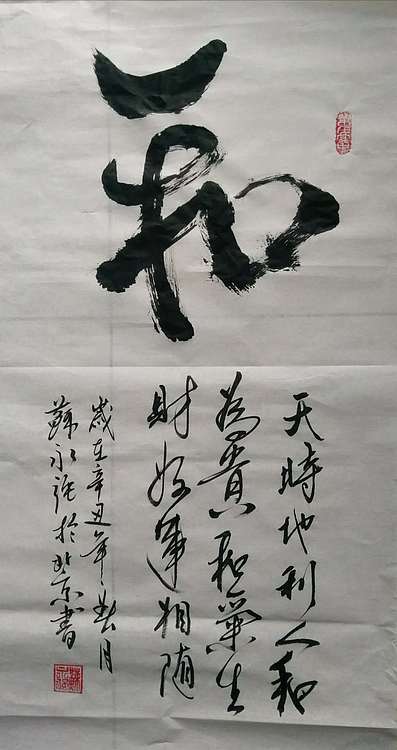 和
天時地利人和
為貴和氣生
財好運相随
歲在辛丑年春月
蘇永强於北京書